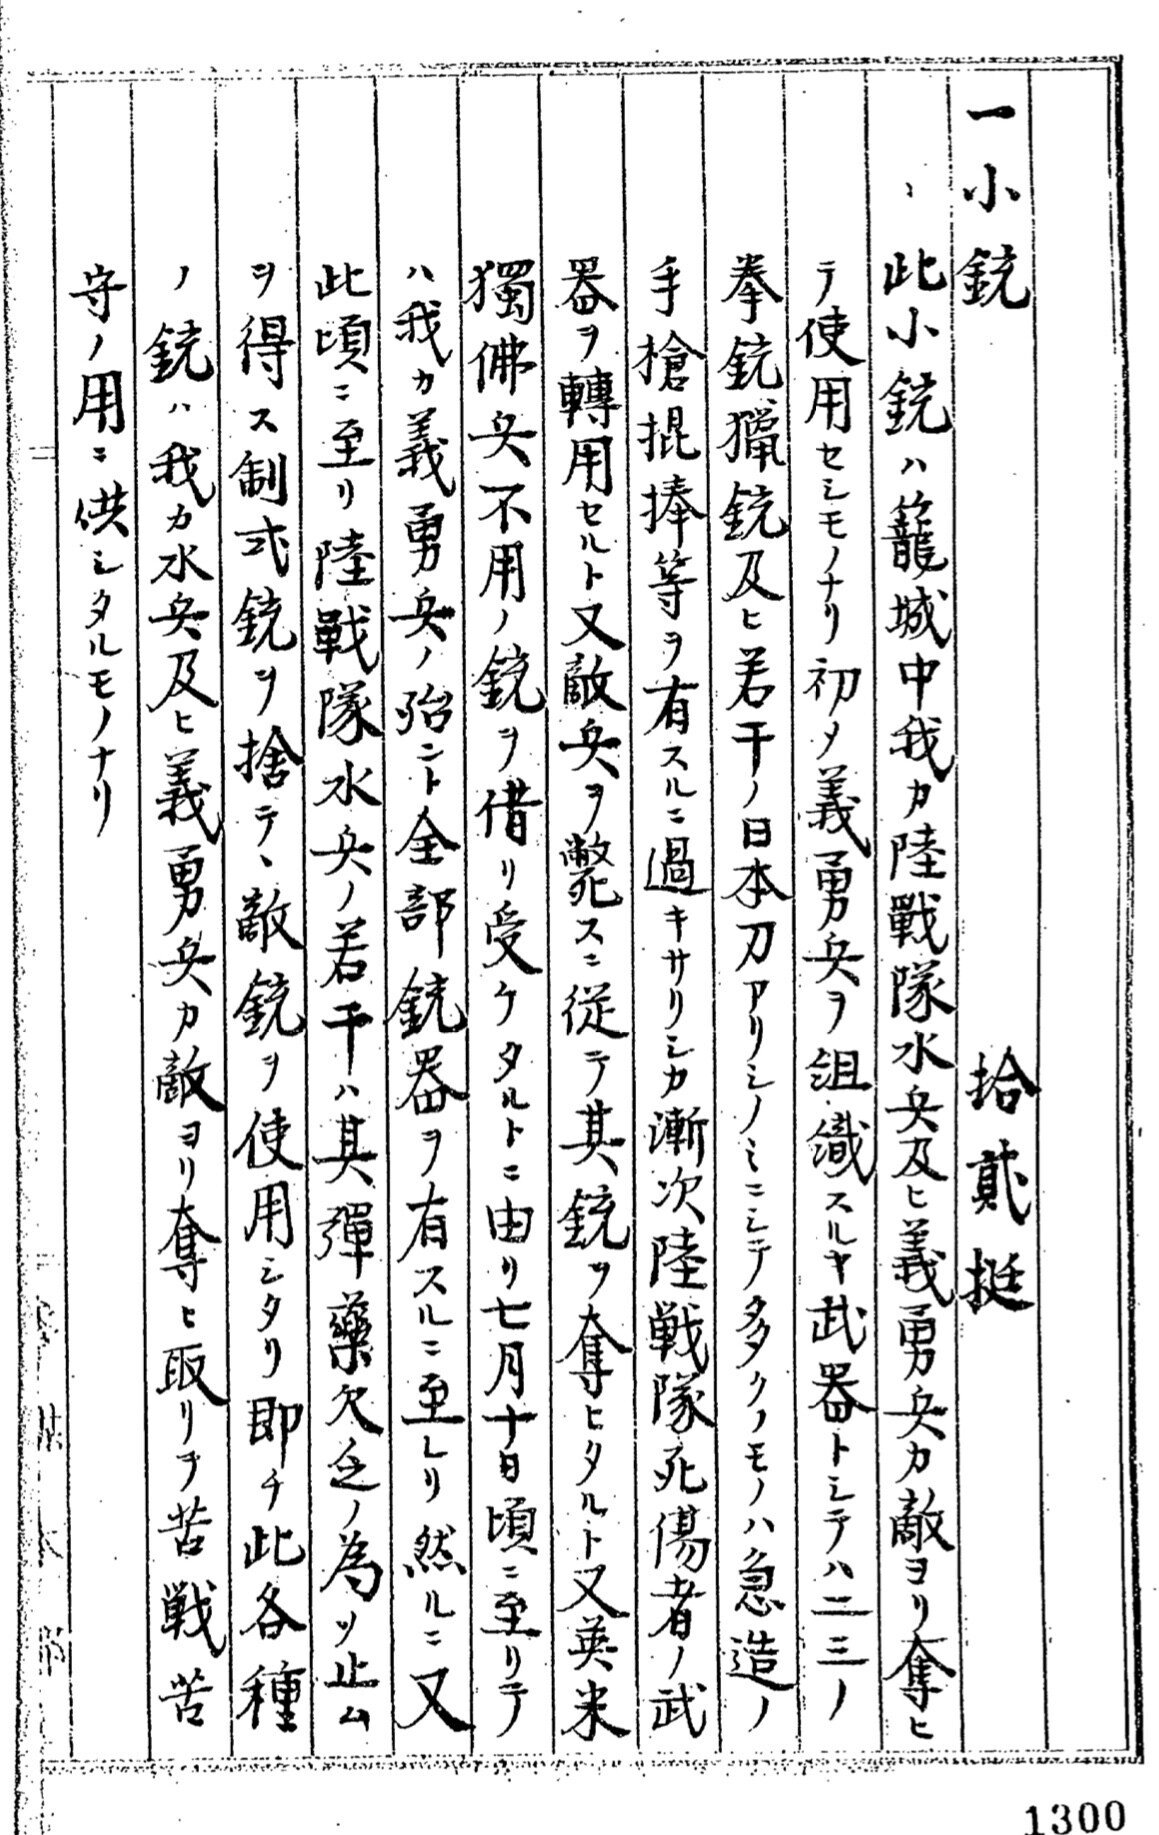 一小銃　拾貳挺
此小銃ハ籠城中我カ陸戰隊水兵及ヒ義勇兵カ敵ヨリ奪ヒ
テ使用セシモノナリ初メ義勇兵ヲ組織スルヤ武器トシテハ二三ノ
拳銃、獵銃及ヒ若干ノ日本刀アリシノミニシテ多クノモノハ急造ノ
手槍棍捧等ヲ有スルニ過キサリシカ漸次陸戦隊死傷者ノ武
器ヲ轉用セルト又敵兵ヲ斃スニ從テ其銃ヲ奪ヒタルト又英米
獨佛兵不用ノ銃ヲ借リ受ケタルトニ由リ七月十日頃ニ至リテ
ハ我カ義勇兵ノ殆ント全部銃器ヲ有スルニ至レリ然ルニ又
此頃ニ至リ陸戦隊水兵ノ若干ハ其彈藥欠乏ノ為メ止ム
ヲ得ス制式銃ヲ捨テ、敵銃ヲ使用シタリ即チ此各種
ノ銃ハ我カ水兵及ヒ義勇兵カ敵ヨリ奪ヒ取リテ苦戦苦
守ノ用ニ供シタルモノナリ
1300